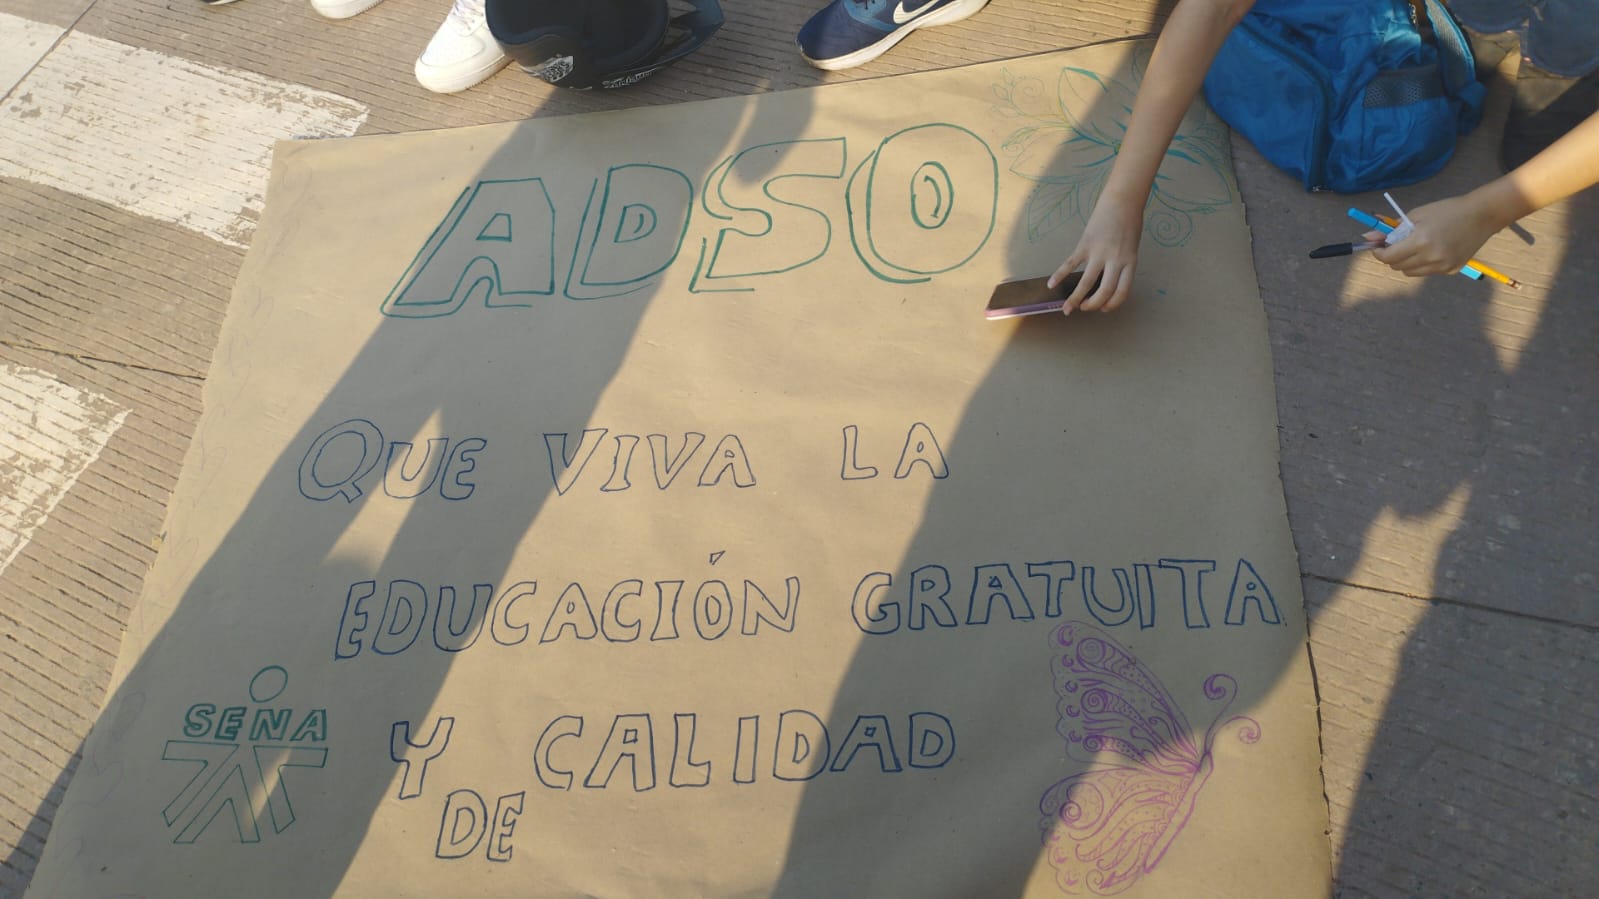 ADSO
QUE VIVA LA
EDUCACIÓN GRATUITA
SENA
Y CALIDAD
DE